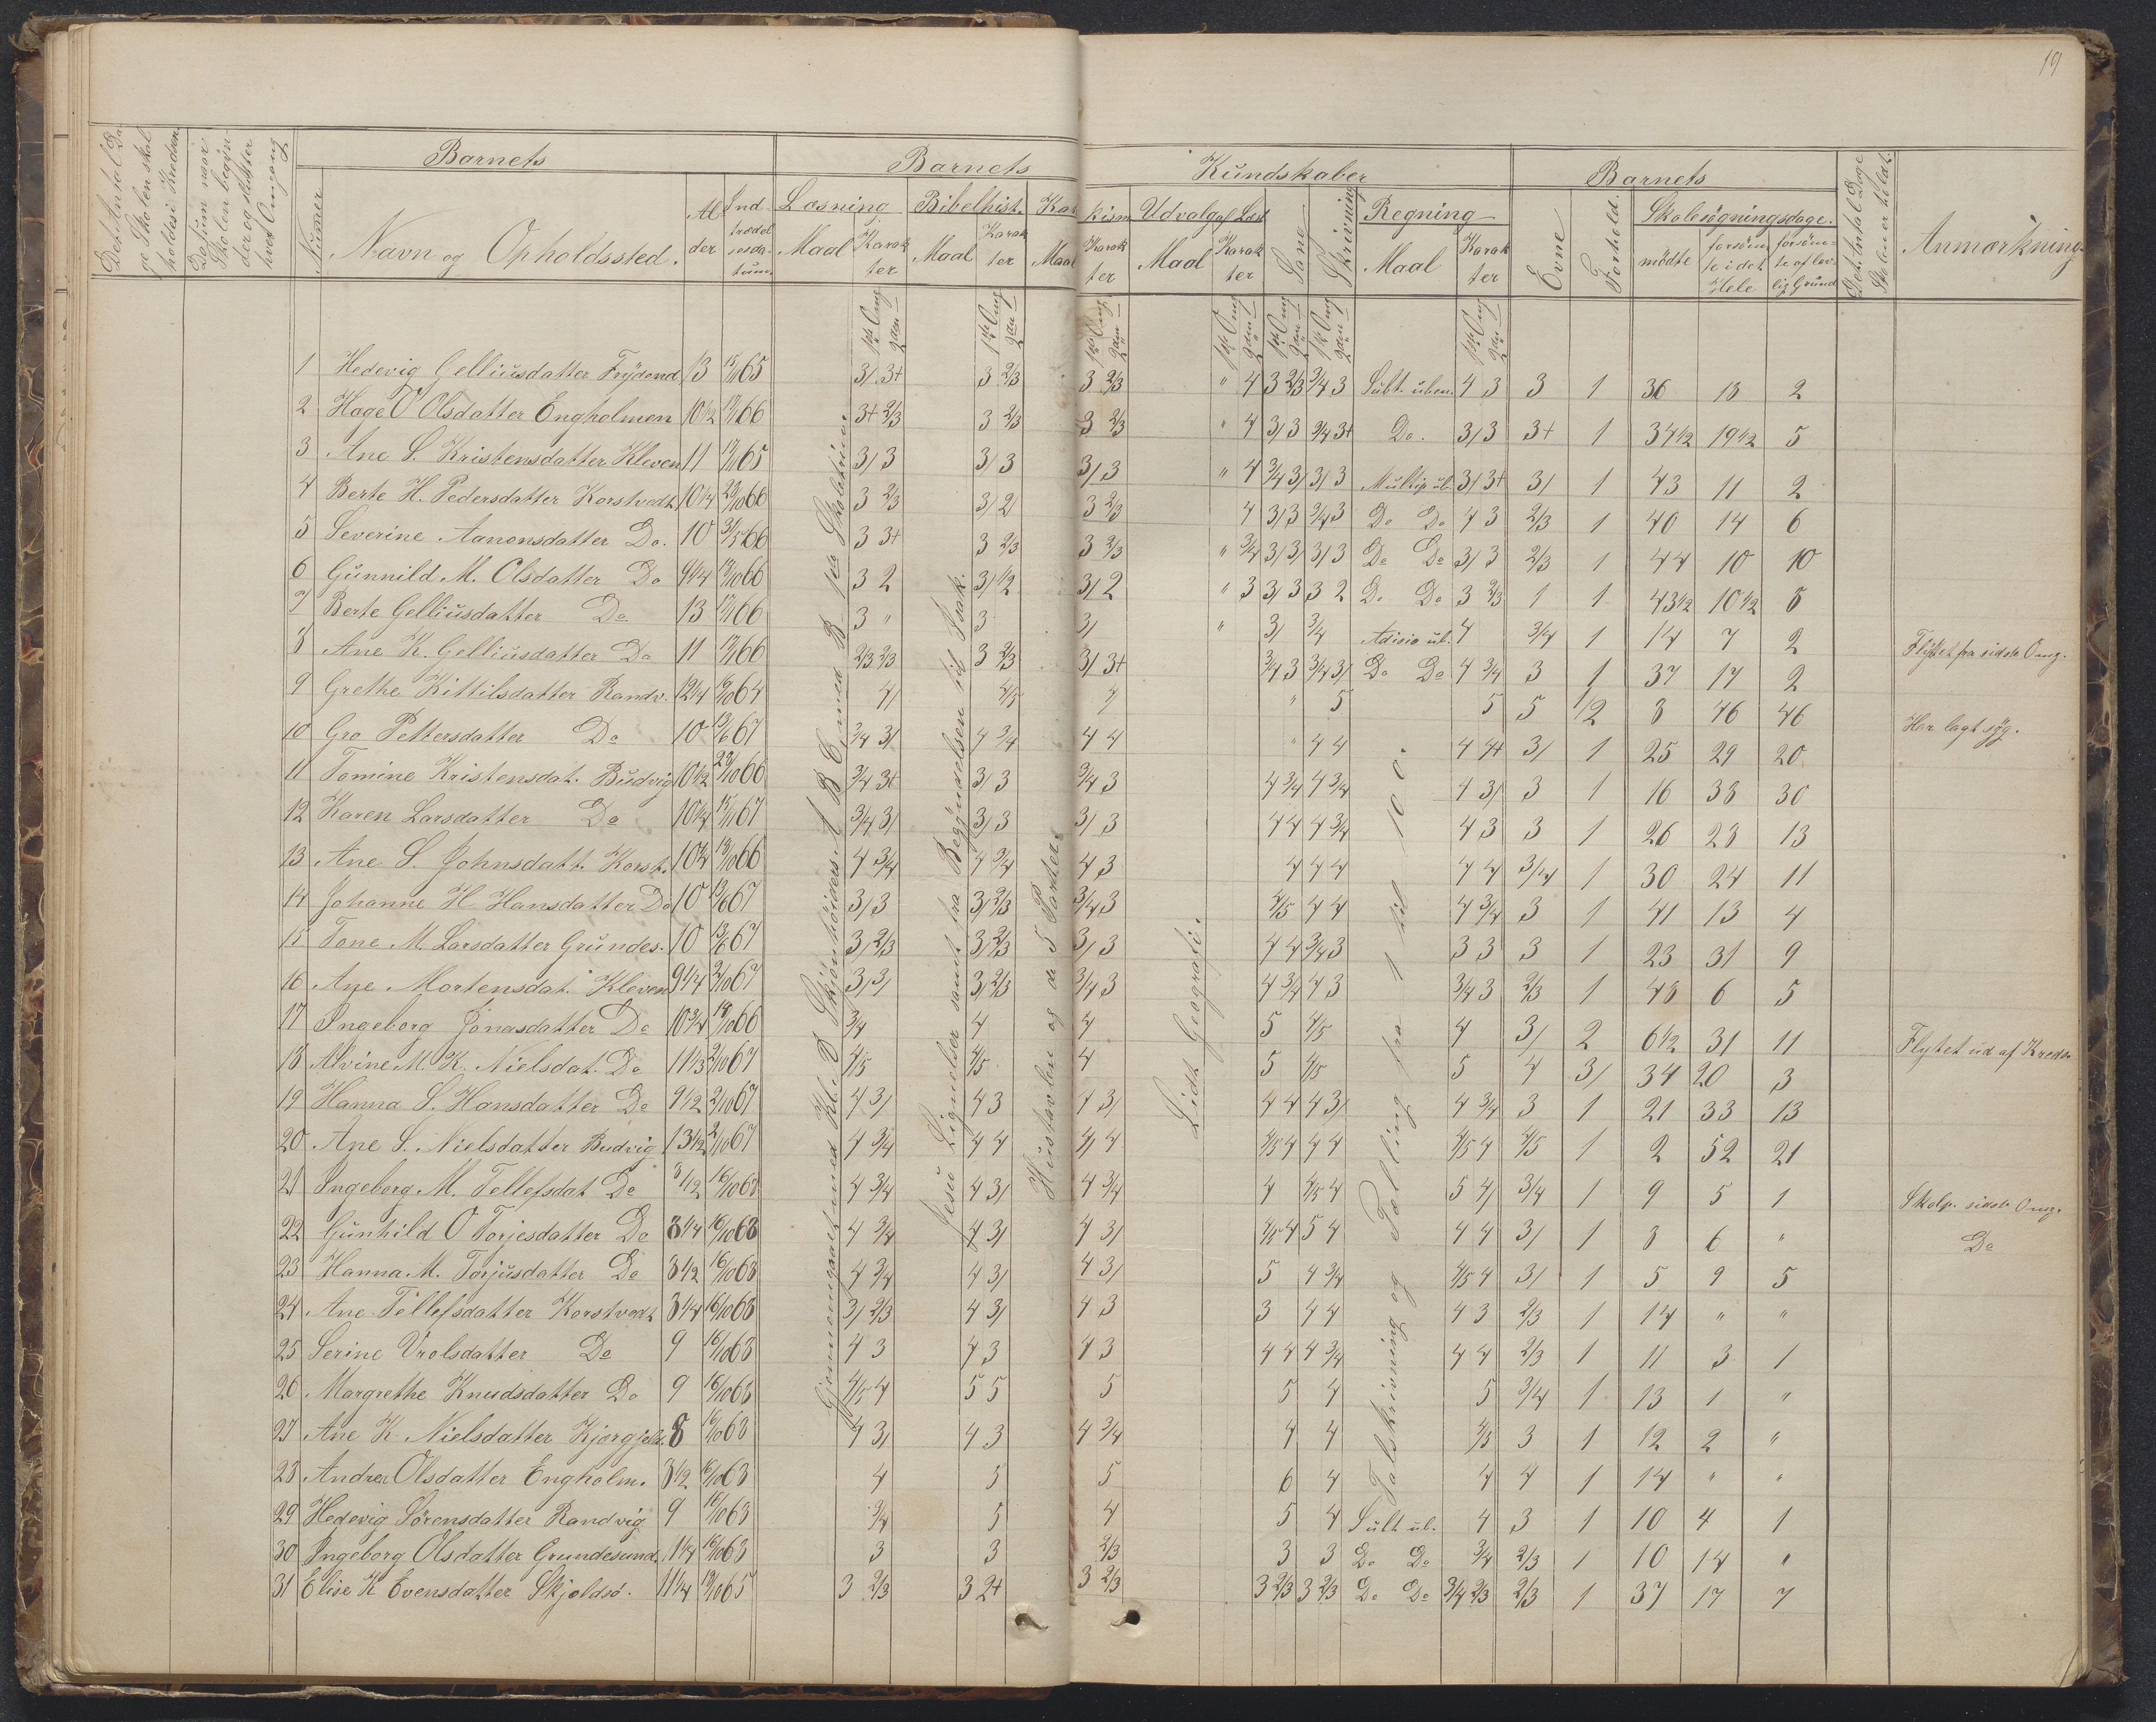 19
Det Antal Dage Skolen skal holdes i Kredsen.
Datum naar Skolen begynder og slutter hver Omgang
Barnets
Barnets
Kundskaber
Barnets
Det Antal Dage Skolen er holdt.
Anmærkning.
Numer
Navn og Opholdssted.
Alder
Indtrædelsesdatum.
Læsning
Bibelhist.
Katkism
Udvalg af Læseb.
Sang
Skrivning
Regning
Evne
Forhold.
Skolesøgningsdage.
Maal Karakter
Maal Karakter
Maal Karakter
Maal Karakter
Maal Karakter
mødte
forsømte i det Hele
forsømte af lovlig Grund
1 Hedevig Gelliusdatter Frydend 13 15/11 65 3/ 3+ 3 2/3 3 2/3 " 4 3 2/3 3/4 3 Subt. uben. 4 3 3 1 36 18 2
2 Hage O Olsdatter Engholmen 10 1/2 66 3+ 2/3 3 2/3 3 2/3 " 4 3/ 3 3/4 3+ Do. 3/ 3 3+ 1 34 1/2 19 1/2 5
3 Ane S. Kristensdatter Kleven 11 65 3/ 3 3/ 3 3/ 3 " 4 3/4 3/ 3/ 3 Multip ub. 3/ 3+ 3/ 1 43 11 2
4 Berte H. Pedersdatter Korstvedt 10 1/4 66 3 2/3 3/ 2 3 2/3 4 3/ 3 3/4 3 Do Do 4 3 2/3 1 40 14 6
5 Severine Aanonsdatter Do. 10 3/5 66 3 3+ 3 2/3 3 2/3 " 3/4 3/ 3/ 3/ 3 Do Do 3/ 3 2/3 1 44 10 10
6 Gunnild M. Olsdatter Do 9 1/4 66 3 2 3/ 1/2 3/ 2 " 3 3/ 3 3 2 Do Do 3 2/3 1 1 43 1/2 10 1/2 8
7 Berte Gelliusdatter Do 13 66 3 " 3 3/ " 3/ 3/4 Adisio ub. 4 3/4 1 14 7 2 Flyttet fra sidste Omg.
8 Ane K. Gelliusdatter Do 11 66 2/3 2/3 3 2/3 3/ 3+ 3/4 3 3/4 3/ Do Do 4 3/4 3 1 37 17 2
9 Grethe Kittilsdatter Randv. 12 1/4 64 4/ 4/5 4 " 5 5 5 1/2 8 46 46 Har lagt syg.
10 Gro Pettersdatter Do 10 13/6 67 3/4 3/ 4 3/4 4 4 " 4 4 4 4+ 3/ 1 25 29 20
11 Tomine Kristensdat. Budvig 10 1/2 66 3/4 3+ 3/ 3 3/4 3 4 3/4 4 3/4 4 3/ 3 1 16 38 30
12 Karen Larsdatter Do 10 1/4 67 3/4 3/ 3/ 3 3/ 3 4 4 4 3/4 4 3 3 1 26 28 13
13 Ane S. Johnsdatt. Korst. 66 4 3/4 4 3/4 4 3 4 4 4 4 4 3/4 1 30 24 11
14 Johanne H Hansdatter Do 10 13/6 67 3/ 3 3/ 2/3 3/4 3 4/5 4 4 4 3/4 3 1 41 13 4
15 Tone M. Larsdatter Grundes. 10 13/6 67 3/ 2/3 3/ 2/3 3/ 3 4 4 3/4 3 3 3 3 1 23 31 9
16 Ane Mortensdat. Kleven 9 1/4 2/10 67 3/ 3/ 3/ 2/3 3/4 3 4 3/4 4 3 3/4 3 2/3 1 48 6 5
17 Ingeborg Jonasdatter Do 10 3/4 66 3/4 4 4 5 4/5 4 3/ 2 6 1/2 31 11 Flyttet ud af Kredse
18 Alvine M. K. Nielsdat. Do 11 1/3 2/10 67 4/5 4/5 4 5 4/5 5 4 3/ 34 20 3
19 Hanna S. Hansdatter Do 9 1/2 2/10 67 4 3/ 4 3 4 3/ 4 4 4 3/ 4 3/4 3 1 21 33 13
20 Ane S. Nielsdatter Budvig 13 1/2 2/10 67 4 3/4 4 4 4/ 4 4/5 4 4 4 4/5 4 4/5 1 2 52 21
21 Ingeborg M. Tellefsdat Do 16/10 68 4 3/4 4 3/ 4 3/4 4 4/5 4 5 4/ 3/4 1 9 5 1 Skolp. sidste Omg.
22 Gunhild O Torjesdatter Do 8 1/4 16/10 68 4 3/4 4 3/ 4 3/ 4/5 4 5 4 4 4 3/ 1 8 6 " Do
23 Hanna M. Torjusdatter Do 8 1/2 16/10 68 4 3/4 4 3/ 4 3/ 5 4 3/4 4/5 4 3/ 1 5 9 5
24 Ane Tellefsdatter Korstvedt 8 1/4 16/10 68 3/ 2/3 4 3/ 4 3 3 4 4 4 3 2/3 1 14 " "
25 Serine Vrolsdatter Do 9 16/10 68 4 3 4 3 4 3 4 4 4 3/4 4 4 2/3 1 11 3 1
26 Margrethe Knudsdatter Do 9 16/10 68 4/5 4 5 5 5 5 4 5 3/4 1 13 1 "
27 Ane K Nielsdatter Kjørgjeld. 8 16/10 68 4 3/ 4 3 4 3/4 4 4 4/5 3 1 12 2 "
28 Andrea Olsdatter Engholm. 8 1/2 16/10 68 4 5 5 6 4 4 4 1 14 " "
29 Hedevig Sørensdatter Randvig 9 16/10 68 3/4 5 4 5 4 Sult ub. 4 3 1 10 4 1
30 Ingeborg Olsdatter Grundesund 16/10 68 3 3 2/3 3 3 Do Do 3/4 2/3 1 10 14 "
31 Elise K Evensdatter Skjoldsø. 11 1/4 65 3 2/3 3 2+ 3 2/3 3 2/3 3 2/3 Do Do 3/4 2/3 2/3 1 37 17 7
Gjennemgaaet med Kl. D Skjønhørders A B C med B paa Skolestuen.
Jesu Lignelser samt fra Begyndelsen til Isak.
Hustavlen og de 5 Parter
Lidt Geografi.
Talskrivning og Tælling fra 1 til 100.